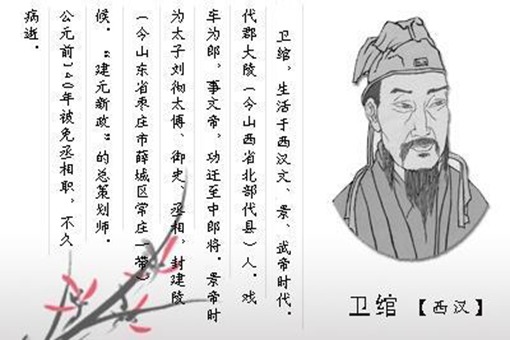 卫绾，生活于西汉文、景、武帝时代。
代郡大陵（今山西省北部代县）人。戏
车为郎，事文帝，功迁至中郎将。景帝时
为太子刘彻太傅、御史、丞相，封建陵
（今山东省枣庄市薛城区常庄一带）
候。“建元新政”的总策划师。
公元前140年被免丞相职，不久
病逝。
卫绾【西汉】